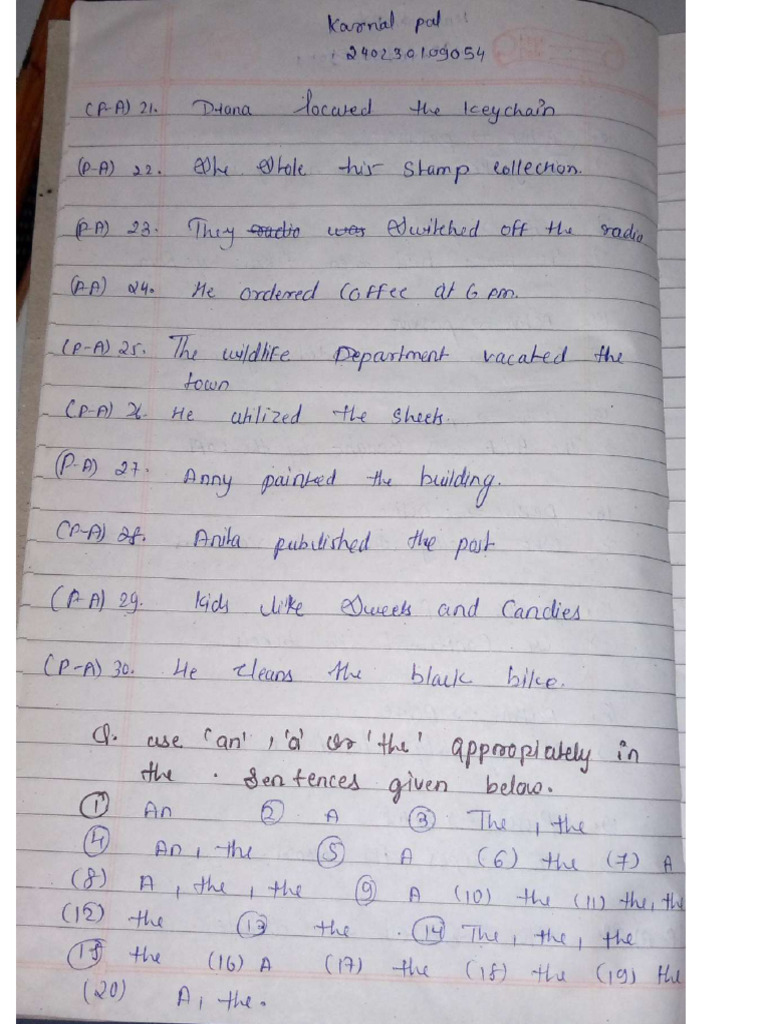 Karnal pal
240230109054
(P-A) 21. Diana located the keychain
(P-A) 22. She Stole his stamp collection.
(P-A) 23. They ~~radio~~ ~~was~~ Switched off the radio
(P-A) 24. He ordered coffee at 6 pm.
(P-A) 25. The wildlife Department vacated the
town
(P-A) 26. He utilized the sheets.
(P-A) 27. Anny painted the building.
(P-A) 28. Anita published the post
(P-A) 29. kids like Sweets and Candies
(P-A) 30. He cleans the black bike.
Q. use 'an', 'a' or 'the' appropiately in
the . Sentences given below.
① An ② A ③ The, the
④ An, the ⑤ A (6) the (7) A
(8) A, the, the ⑨ A (10) the (11) the, the
(12) the ⑬ the ⑭ The, the, the
⑮ the (16) A (17) the (18) the (19) the
(20) A, the.